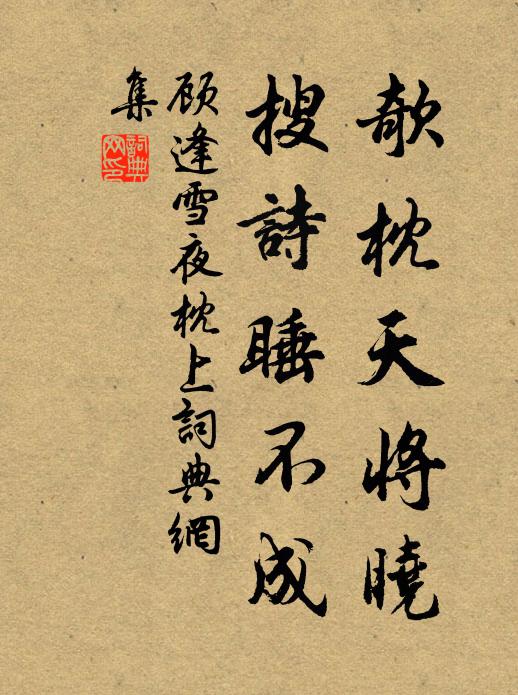 欹枕天将曉
搜詩睡不成
顧逢雪夜枕上詞典網
集
詞典
网印